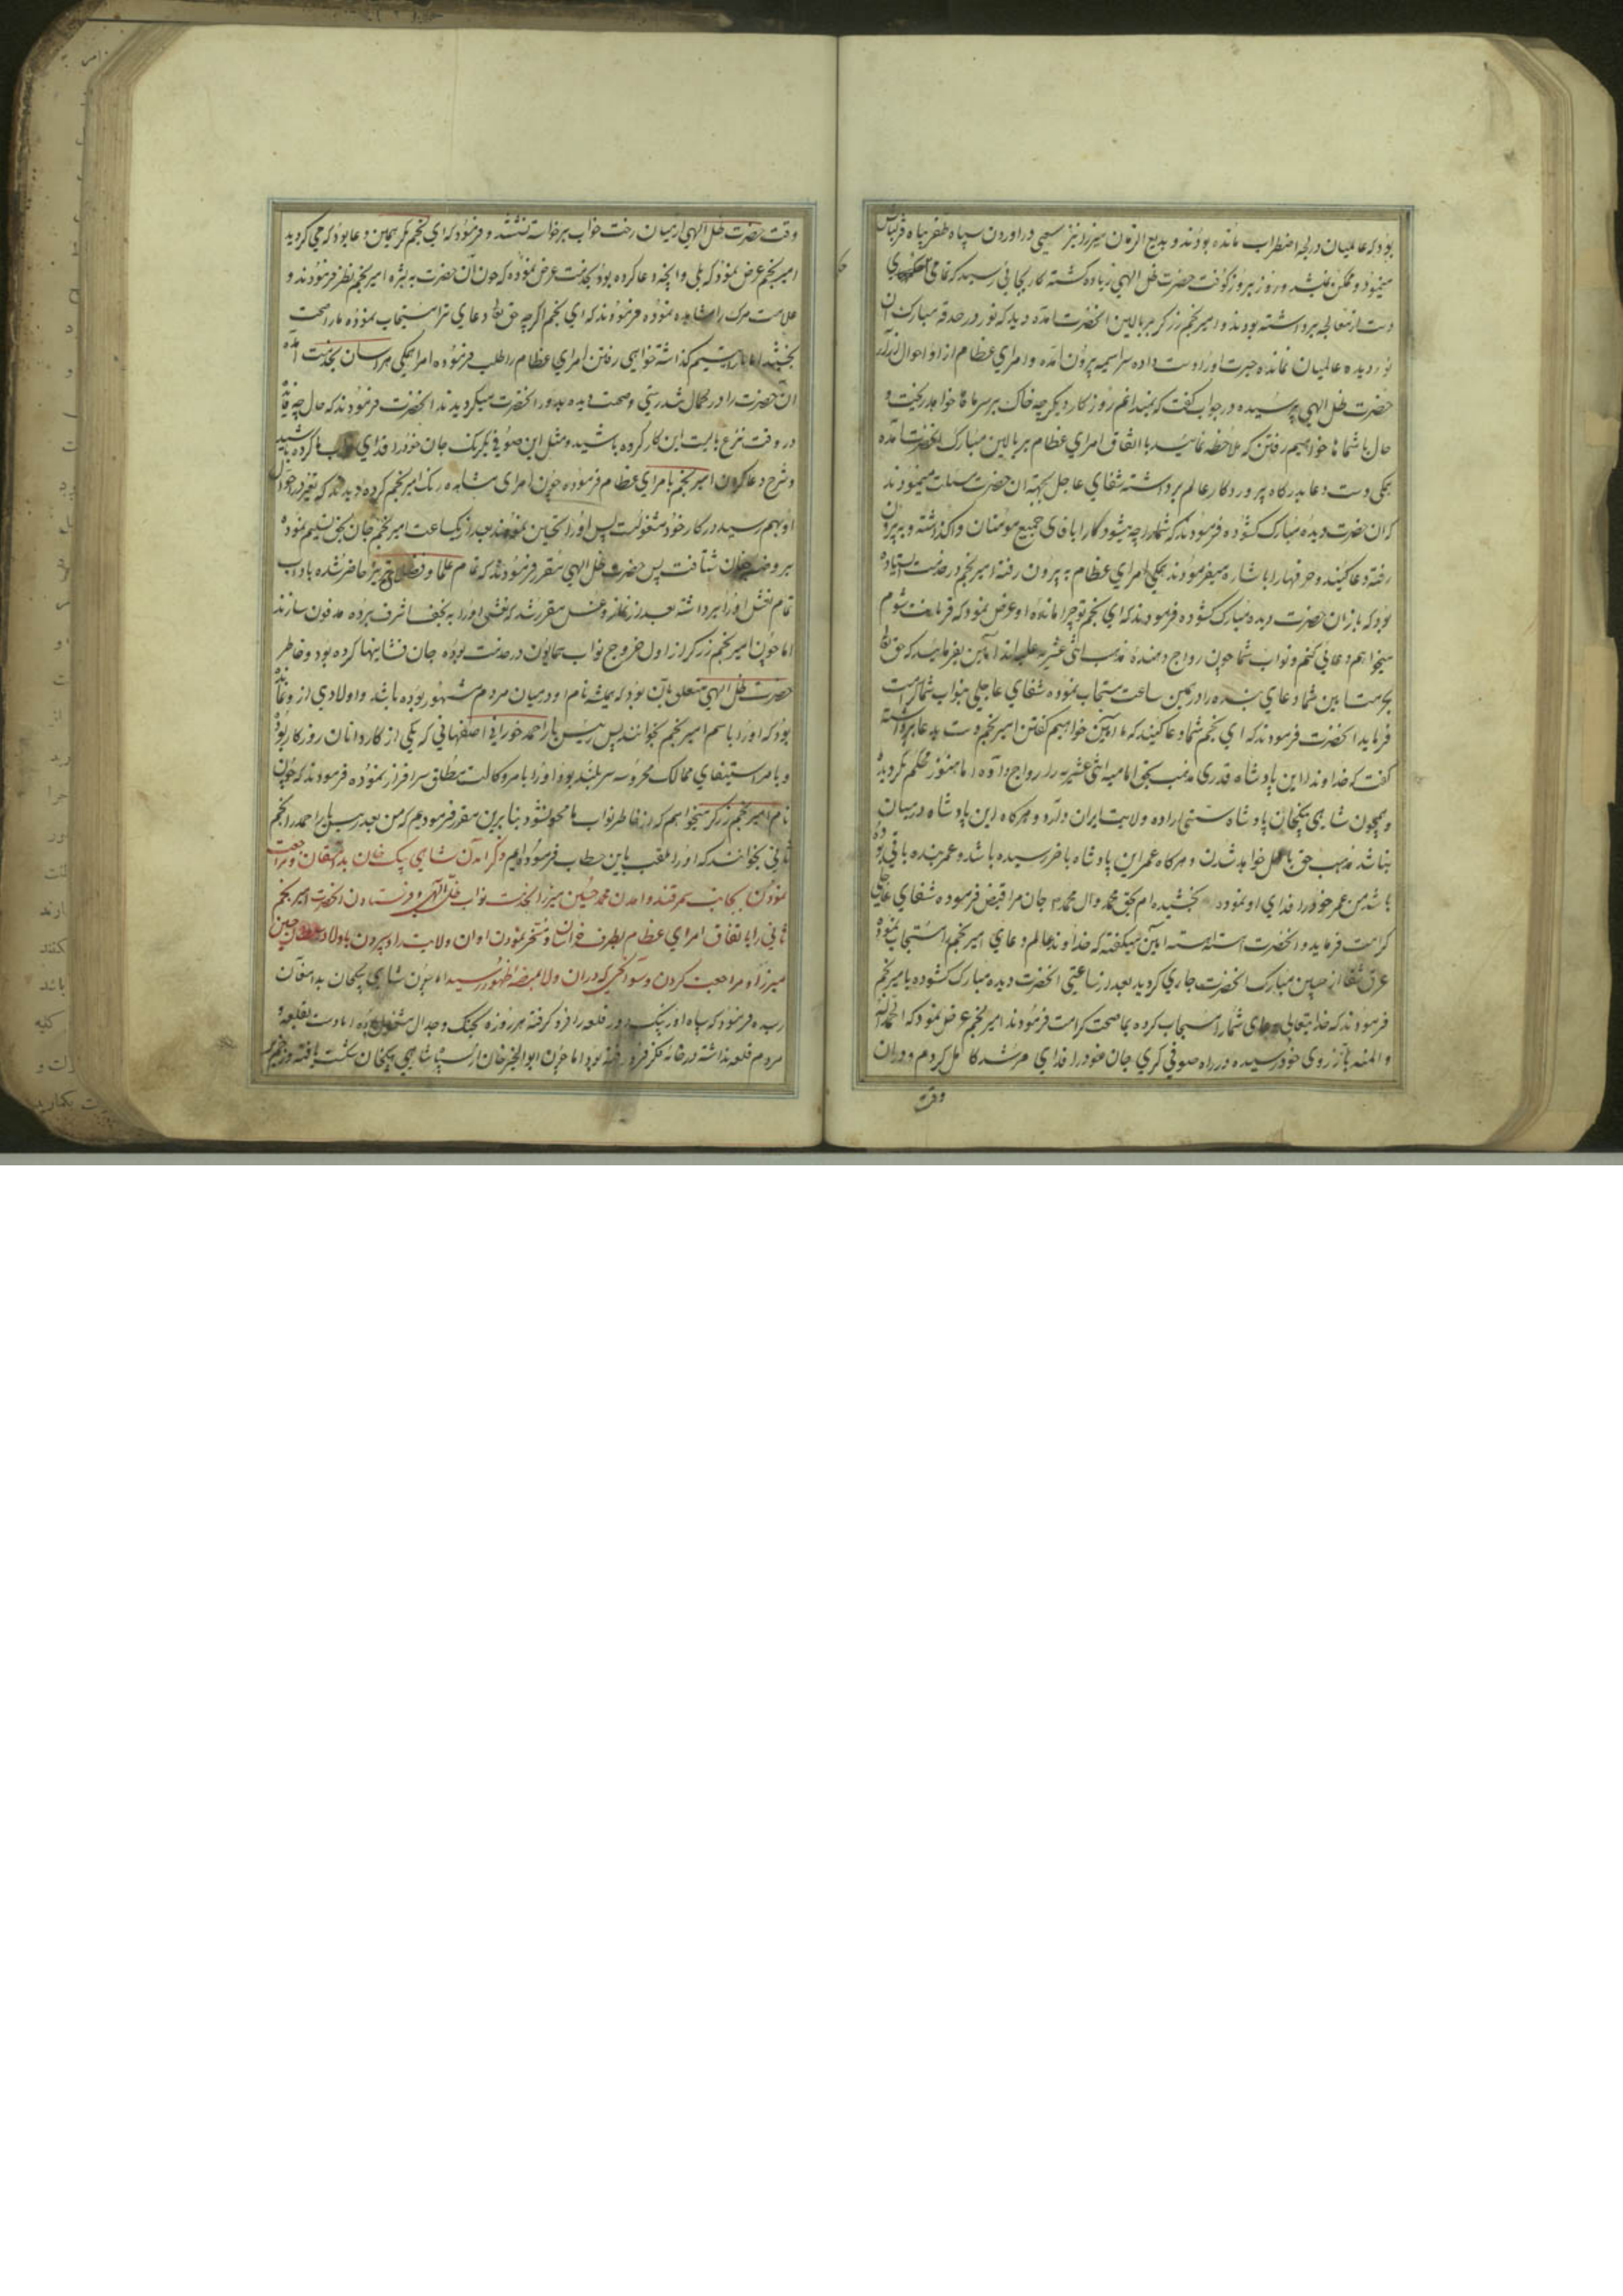 بود که عالمیان در لجه اضطراب مانده بودند و بدیع الزمان میرزا نیز سعی در آوردن سپاه ظفر پناه قزلباش
مینمود و ممکن نمیشد و روز بروز کوفت حضرت ظل الهی زیاده گشته کار بجائی رسید که تمامی
دست از معالجه برداشته بودند و امیر نجم زرکر بر بالین انحضرت آمده دید که نور در حدقه مبارک ان
نور دیده عالمیان نمانده حیرت او را دست داده سراسیمه بیرون آمده و امرای عظام از او احوال
حضرت ظل الهی پرسیده در جواب گفت که نمیدانم روزگار دیگر چه خاک بر سر ما خواهد ریخت و
حال با شما ها خواهیم رفتن که ملاحظه نمائید با اتفاق امرای عظام بر بالین مبارک انحضرت آمده
همکی دست دعا بدرگاه پروردگار عالم برداشته شفای عاجل بجهة ان حضرت مسئلت مینمودند
که ان حضرت دیده مبارک گشوده فرمودند که شما را چه میشود کار را باقای جمیع مومنان واگذاشته و به بیرون
رفته دعا کنید و حرفها را باشاره میفرمودند همکی امرای عظام به بیرون رفته امیر نجم در خدمت ایستاده
بود که باز ان حضرت دیده مبارک گشوده فرمودند که ای نجم تو چرا مانده او عرض نمود که قربانت شوم
میخواهم دعائی کنم و نواب شما چون رواج دهنده مذهب اثنی عشریه علیه اند آمین بفرمائید که حق تعالی
بحرمت این شما دعای بنده را در همین ساعت مستجاب نموده شفای عاجلی بنواب شما کرامت
فرماید انحضرت فرمودند که ای نجم شما دعا کنید که ما آمین خواهیم گفتن امیر نجم دست بدعا برداشته
گفت که خداوندا این پادشاه قدری مذهب بحق امامیه اثنی عشریه را رواج داده اما هنوز محکم نگردیده
و همچون شاهی بیکخان پادشاه سنی اراده ولایت ایران دارد و هرگاه این پادشاه در میان
نباشد مذهب حق باطل خواهد شدن و هرگاه عمر این پادشاه باخر رسیده باشد و عمر بنده باقی بوده
باشد من عمر خود را فدای او نموده بخشیده ام بحق محمد و ال محمد که جان مرا قبض فرموده شفای عاجلی
کرامت فرماید و انحضرت اهسته اهسته آمین میگفته که خداوند عالم دعای امیر نجم را مستجاب نموده
عرق شفا از جبین مبارک انحضرت جاری گردید بعد از ساعتی انحضرت دیده مبارک گشوده بامیر نجم
فرمودند که خدایتعالی دعای شما را مستجاب کرده بما صحت کرامت فرمودند امیر نجم عرض نمود که الحمد لله
و المنه بارزوی خود رسیده در راه صوفی گری جان خود را فدای مرشد کامل کردم و در ان
وقت
وقت حضرت ظل الهی از میان رخت خواب برخاسته نشسته و فرمود که ای نجم مگر همین دعا بود که می کردید
امیر نجم عرض نمود که بلی و انچه دعا کرده بود بخدمت عرض نموده که چون ان حضرت به بشره امیر نجم نظر فرمودند و
علامت مرک را مشاهده نموده فرمودند که ای نجم اگر چه حق تعالی دعای ترا مستجاب نموده ما را صحت
بخشید اما ما را یتیم گذاشته خواهی رفتن امرای عظام را طلب فرموده امرا همکی هراسان بخدمت آمده
ان حضرت را در کمال تندرستی و صحت دیده بدور انحضرت میگردیدند انحضرت فرمودند که حال چه فایده
در وقت نزع بایست این کار کرده باشید و مثل این صوفی یکرنک جان خود را فدای ما کرده باشید
و شرح دعا کردن امیر نجم بامرای عظام فرموده چون امرای مشاهده رنک امیر نجم کرده دیدند که تغیر در احوال
او بهم رسیده در کار خود مشغولست پس او را تحسین نمودند بعد از یکساعت امیر نجم جان بحق تسلیم نموده
بروضه جنان شتافت پس حضرت ظل الهی مقرر فرمودند که تمام علما و فضلای تبریز حاضر شده باداب
تمام نعش او را برداشته بعد از نماز و غسل مقرر شد که نعش او را به نجف اشرف برده مدفون سازند
اما چون امیر نجم زرکر از اول خروج نواب همایون در خدمت بوده جان فشانیها کرده بود و خاطر
حضرت ظل الهی متعلق بان بود که همیشه نام او در میان مردم مشهور بوده باشد و اولادی از و نمانده
بود که او را باسم امیر نجم بخوانند پس یار احمد خوزانی اصفهانی که یکی از کاردانان روزگار بوده
و بامر استیفای ممالک محروسه سربلند بود او را بامر وکالت مطلق سرافراز نموده فرمودند که چون
نام امیر نجم زرکر میخواهم که از خاطر نواب ما محو نشود بنابرین مقرر فرمودیم که من بعد یار احمد را نجم
ثانی بخوانند که او را ملقب باین خطاب فرموده ایم ذکر آمدن شاهی بیک خان بدامغان و مراجعت
نمودن بجانب سمرقند و امدن محمد حسین میرزا بخدمت نواب ظل الهی و فرستادن انحضرت امیر نجم
ثانی را باتفاق امرای عظام بطرف خراسان و مسخر نمودن اوان ولایت را و سپردن باولاد سلطان حسین
میرزا و مراجعت کردن و سوانحی که در ان ولا بمنصه ظهور رسید اما چون شاهی بیکخان بدامغان
رسیده فرمود که سپاه اوزبک دور قلعه را فرو گرفته هر روزه بجنک و جدال مشغول بوده اما دست بقلعه و
مردم قلعه نداشته در خانه فکر فرو رفته بود اما چون ابو الخیر خان از سپاه شاهی بیکخان شکست یافته